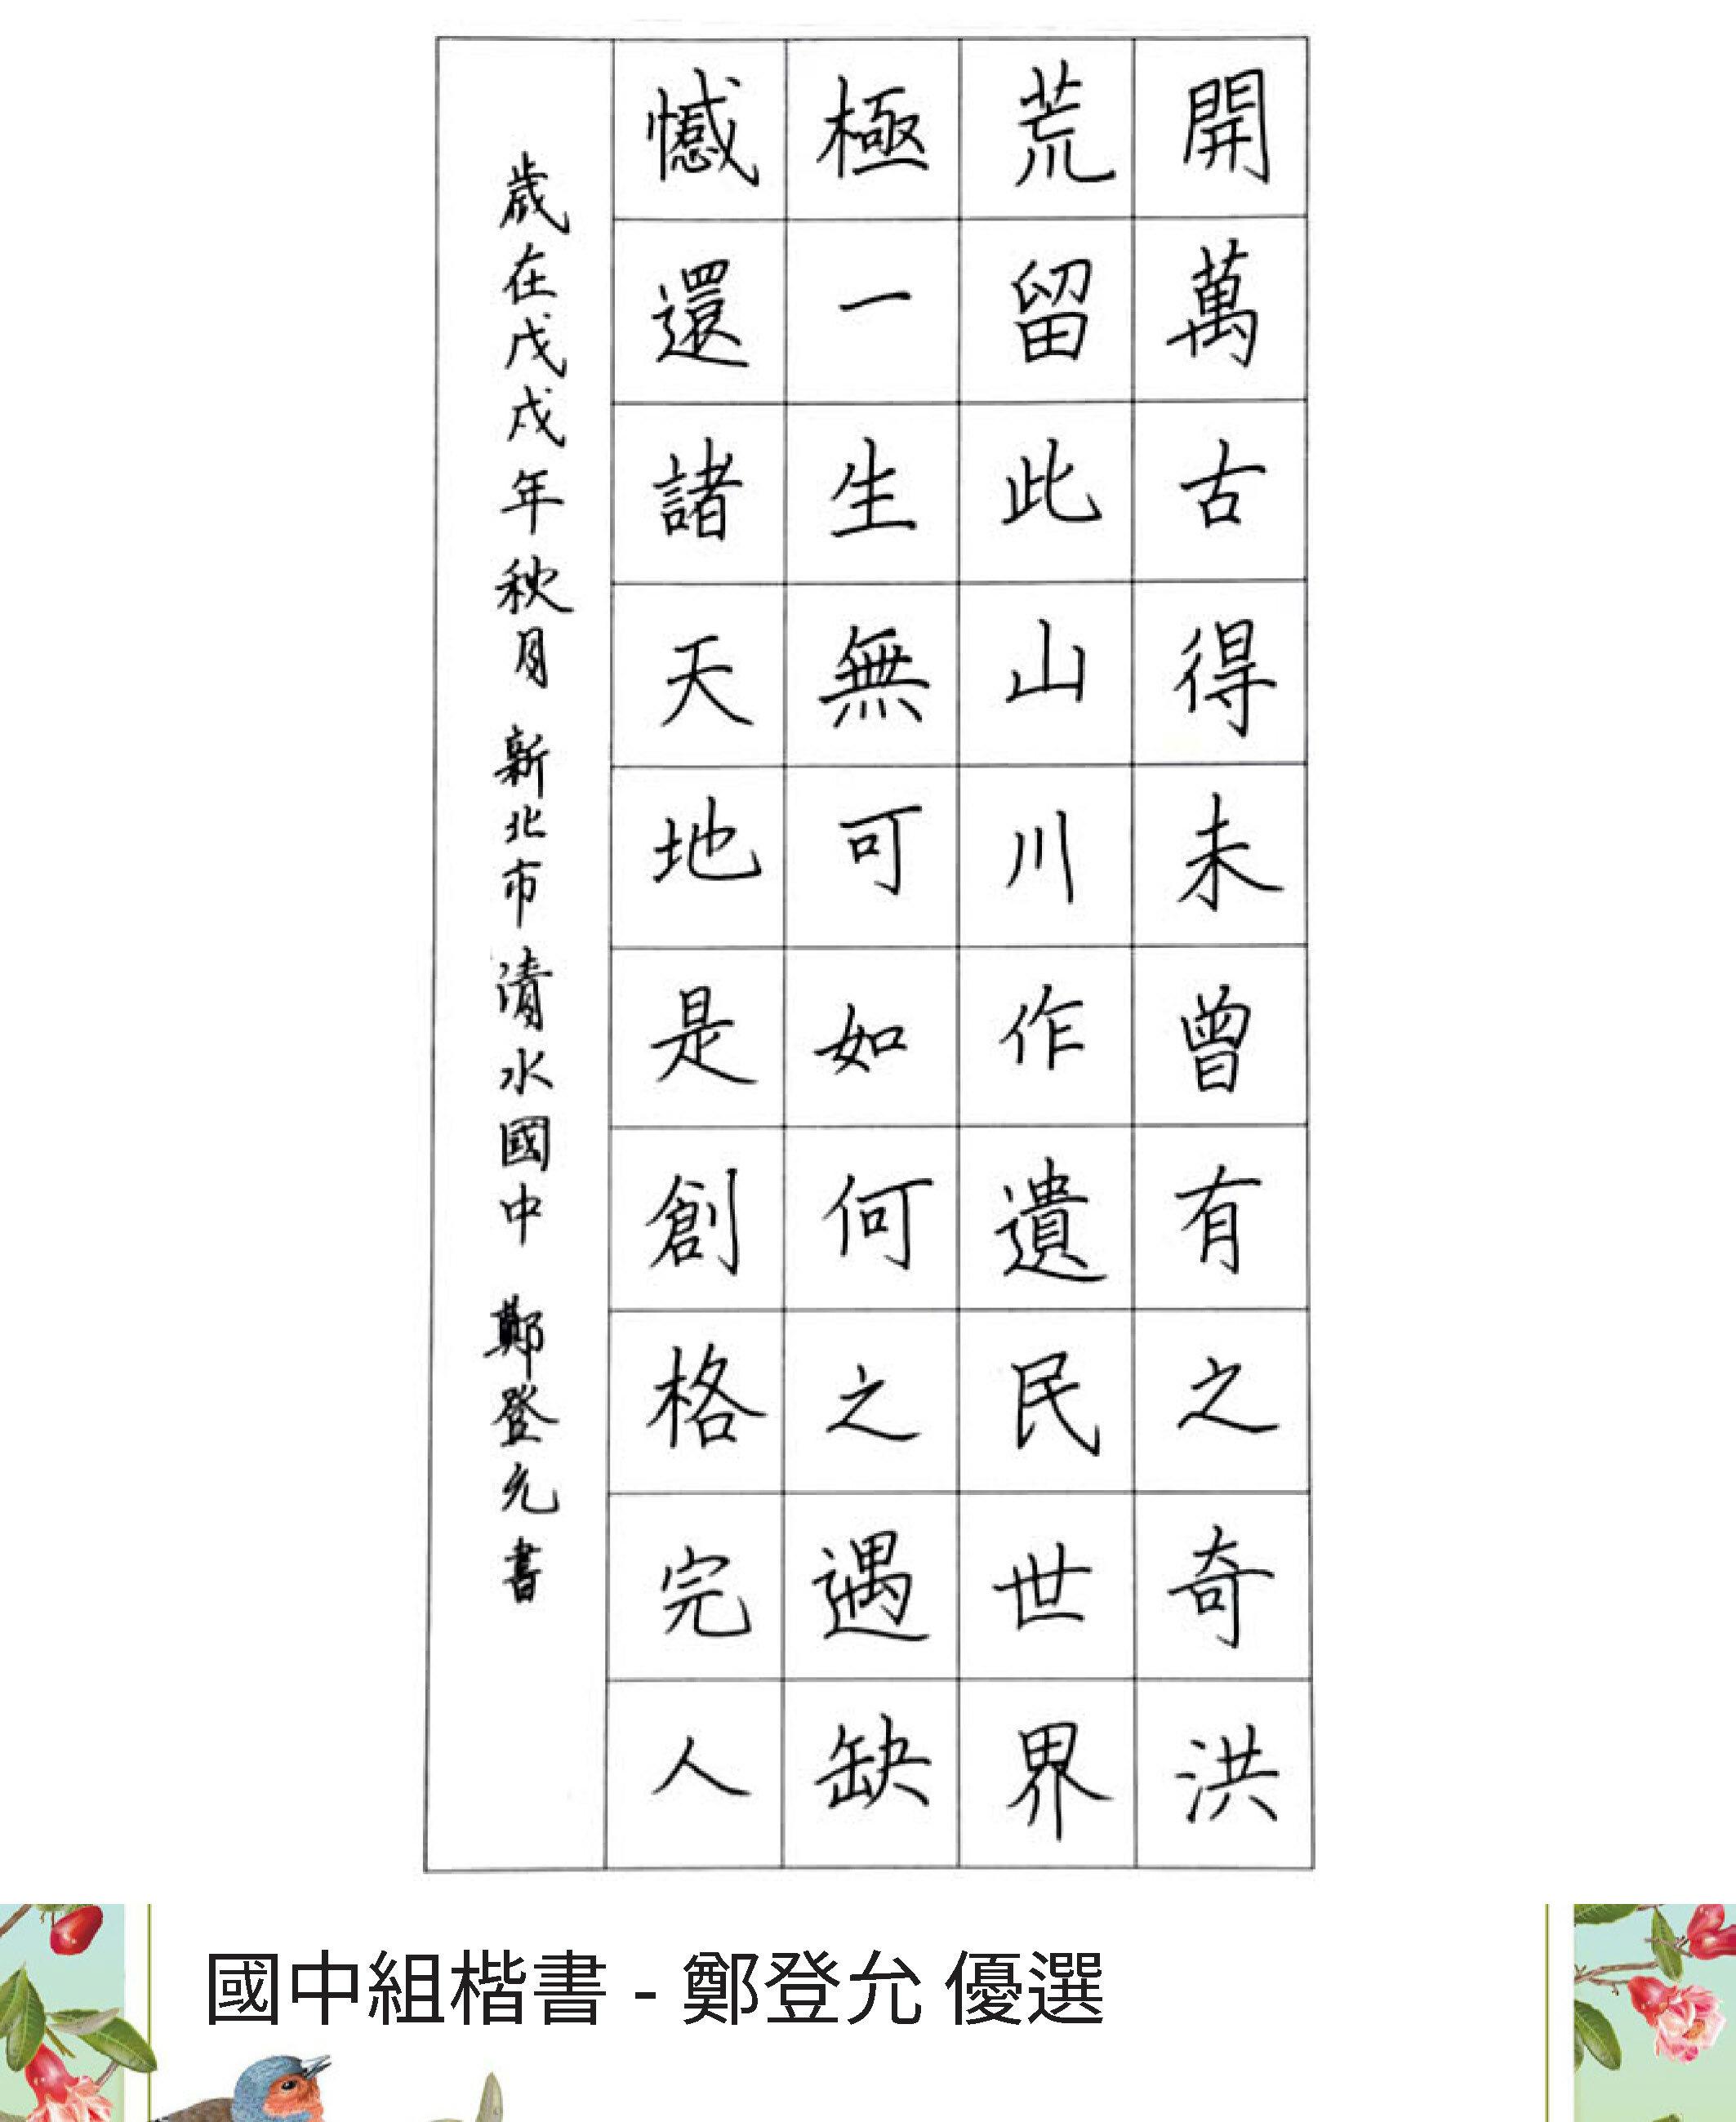 開萬古得未曾有之奇洪
荒留此山川作遺民世界
極一生無可如何之遇缺
憾還諸天地是創格完人
歲在戊戌年秋月 新北市清水國中 鄭登允書
國中組楷書 - 鄭登允 優選